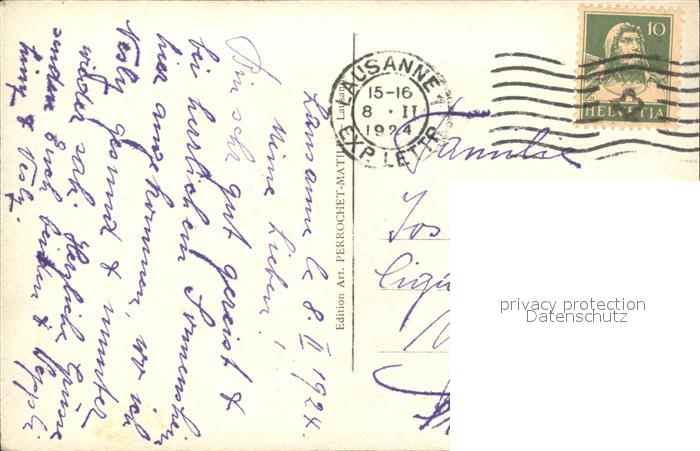 Lausanne le 8. II 1924.
Meine Lieben!
Bin sehr gut gereist &
bei herrlichem Sonnenschein
hier angekommen, wo ich
Nesly gesund & munter
wieder sah. Herzliche Grüsse
senden Euch beiden &
& Nesly.
Edition Art. PERROCHET-MATI Lausanne
LAUSANNE 1
15-16
8 · II
1924
EXP. LETTR.
10
HELVETIA
Familie
Jos
privacy protection
Datenschutz